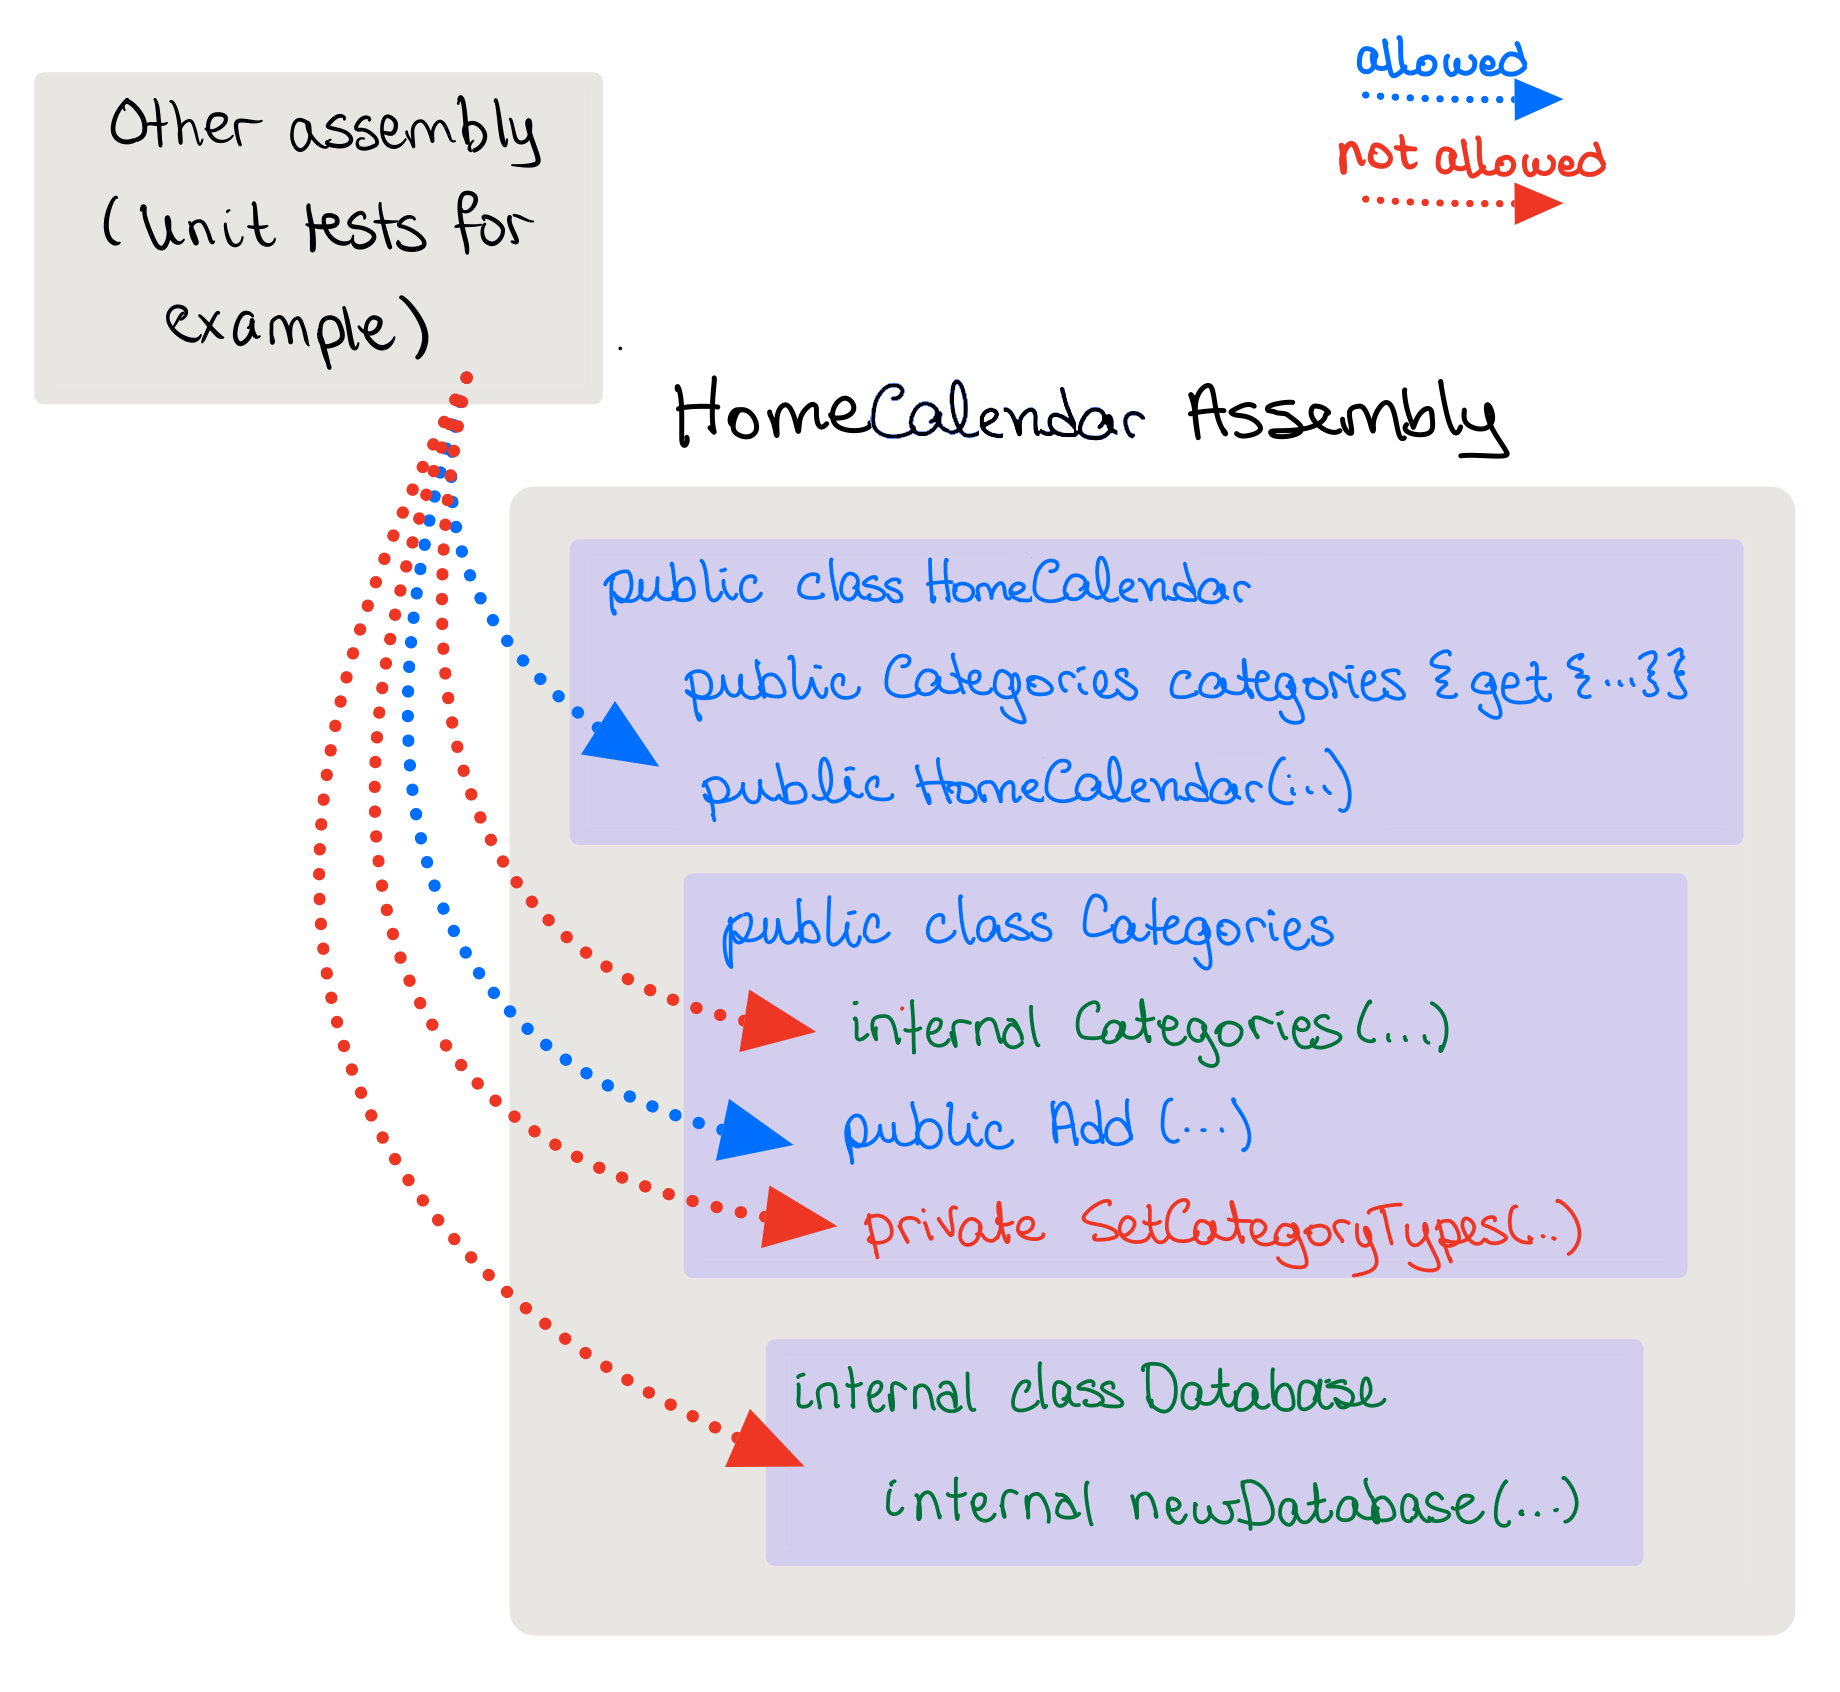 allowed
not allowed
Other assembly
(Unit tests for
example)
HomeCalendar Assembly
public class HomeCalendar
public Categories categories {get {...}}
public HomeCalendar(...)
public class Categories
internal Categories (...)
public Add (...)
private SetCategoryTypes(..)
internal class Database
internal newDatabase(...)